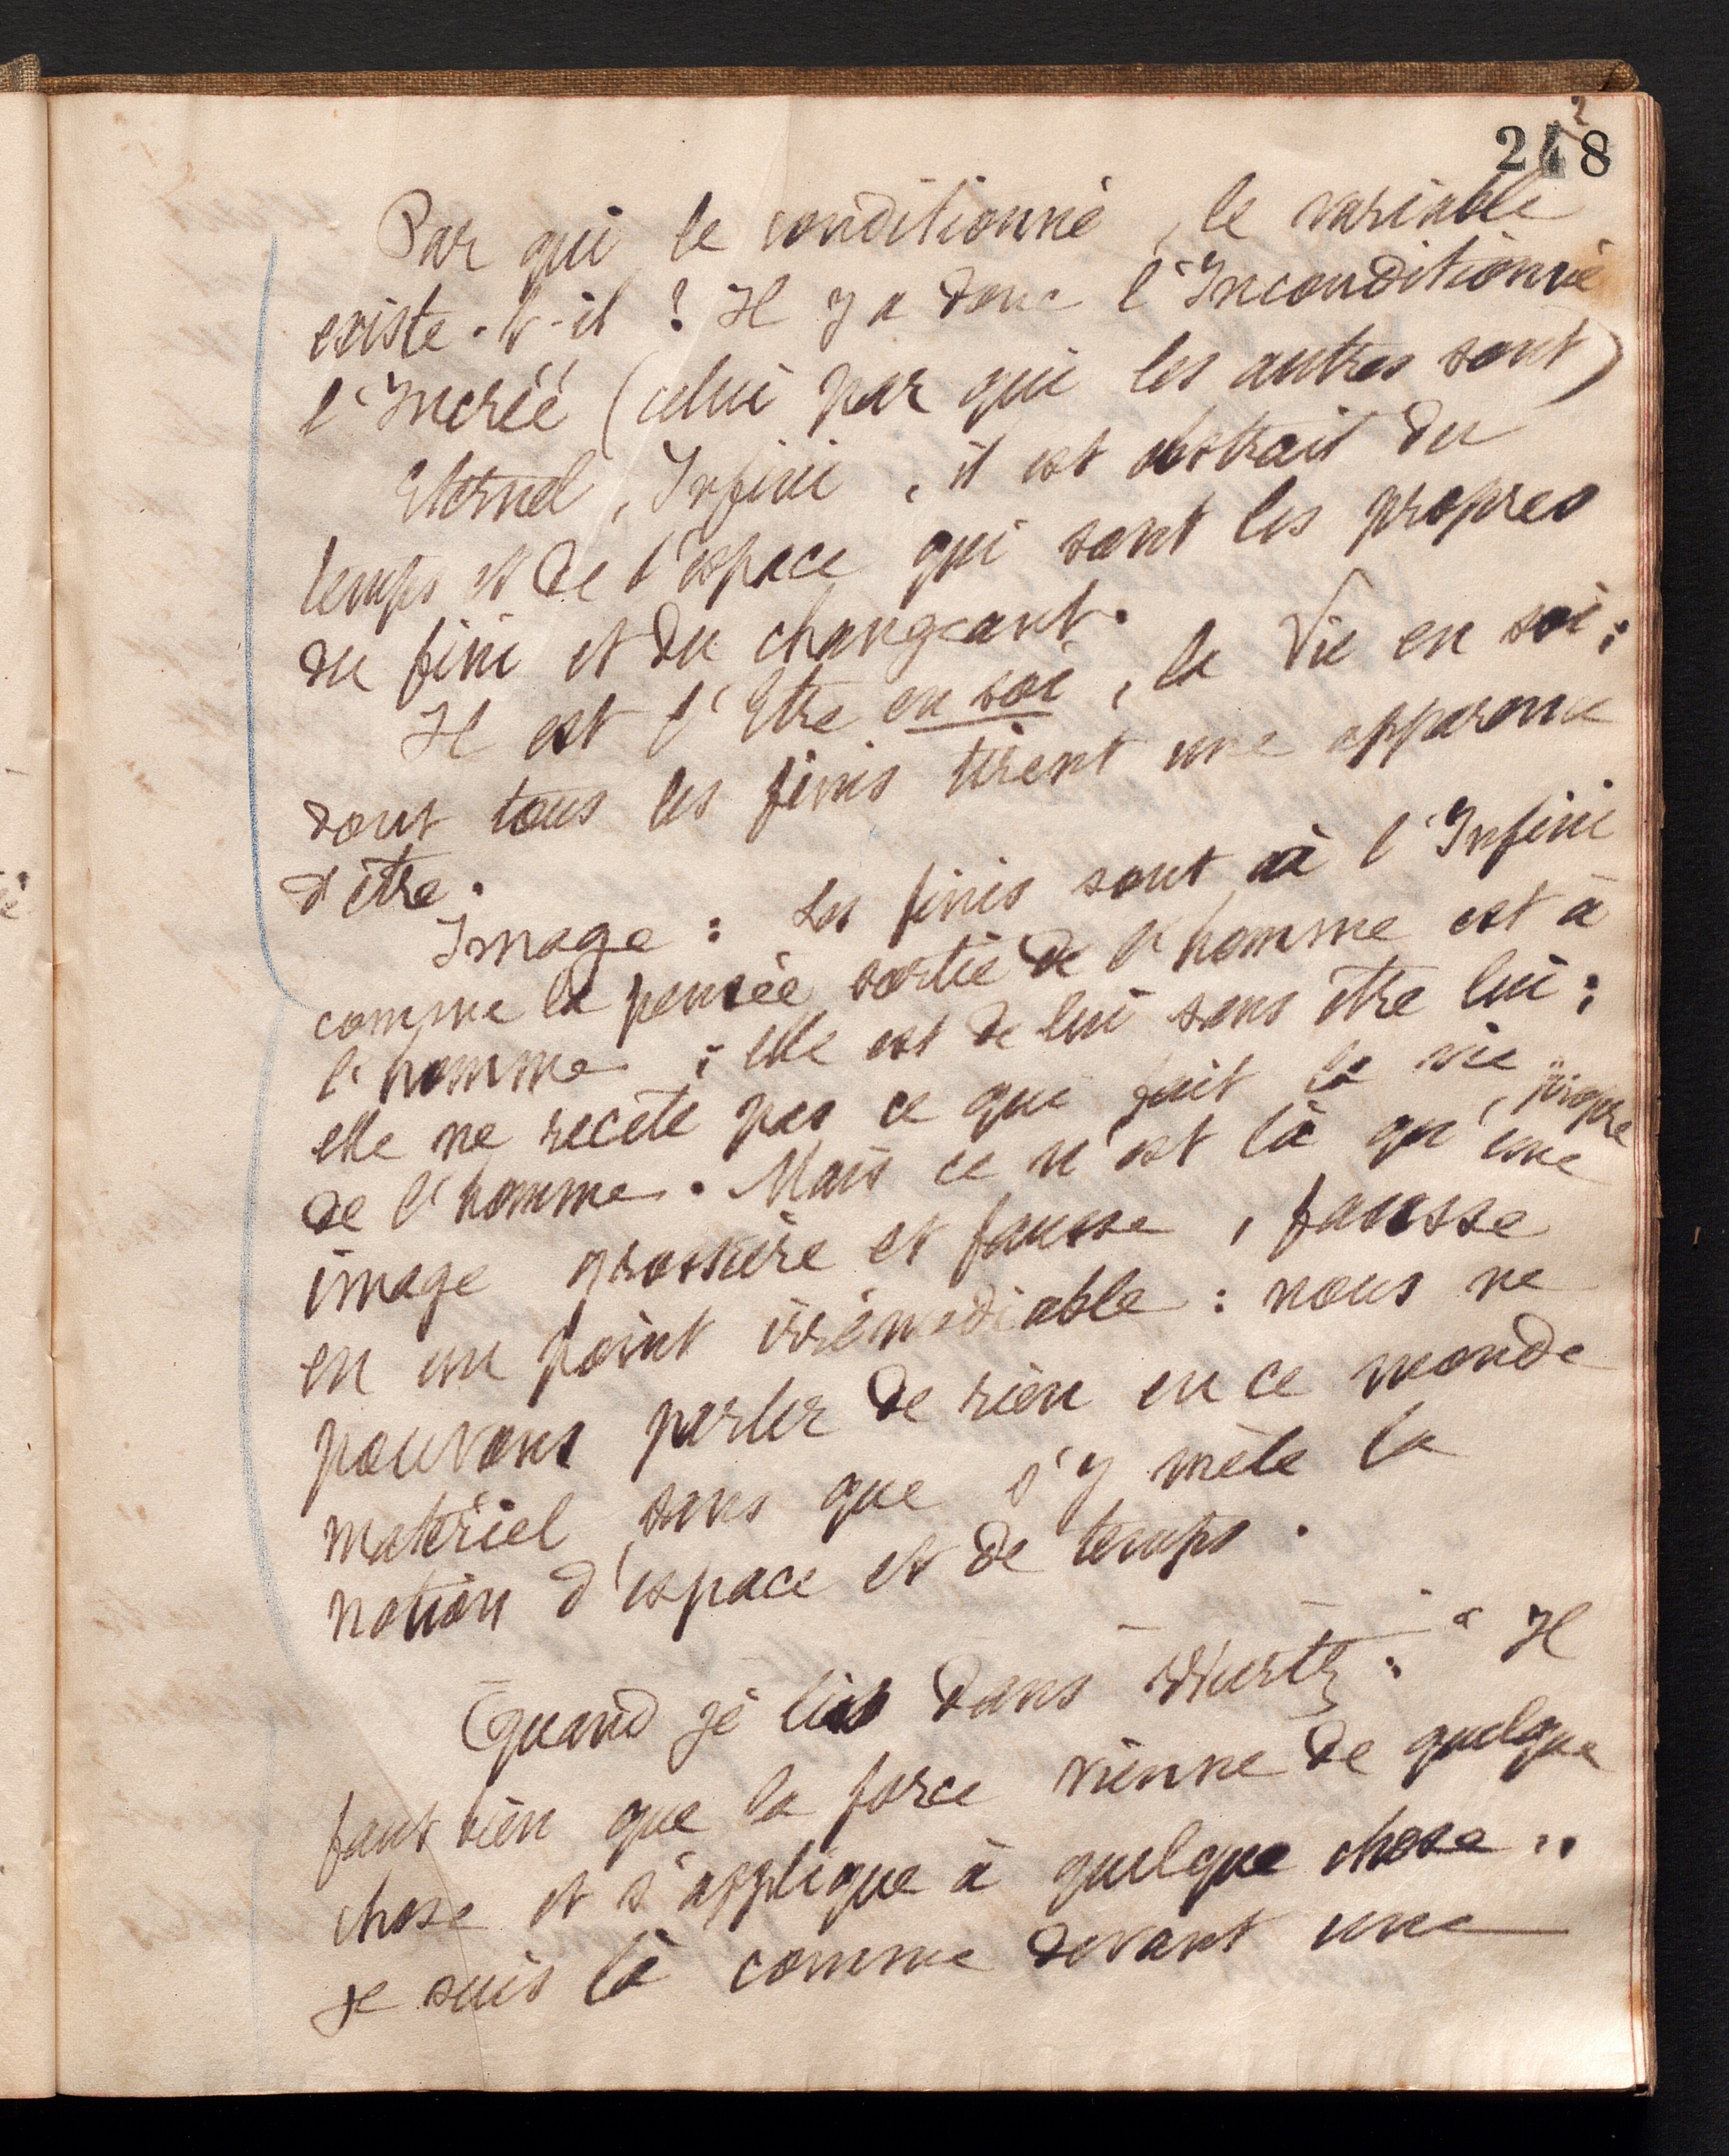 248
2
Par qui le conditionné, le variable
existe-t-il ? Il y a donc l'Inconditionné
l'Incréé (celui par qui les autres sont)
Eternel, Infini, il est abstrait du
temps et de l'espace qui sont les propres
du fini et du changeant.
Il est l'Etre en soi, la Vie en soi ;
dont tous les finis tirent une apparence
d'être.
Image : Les finis sont à l'Infini
comme la pensée sortie de l'homme est à
l'homme ; elle est de lui sans être lui ;
elle ne recèle pas ce qui fait la vie propre
de l'homme. Mais ce n'est là qu'une
image grossière et fausse, fausse
en un point irrémédiable : nous ne
pouvons parler de rien en ce monde
matériel, sans que s'y mêle la
notion d'espace et de temps.
Quand je lis dans Wurtz : " Il
faut bien que la force vienne de quelque
chose et s'applique à quelque chose "
je suis là comme devant une